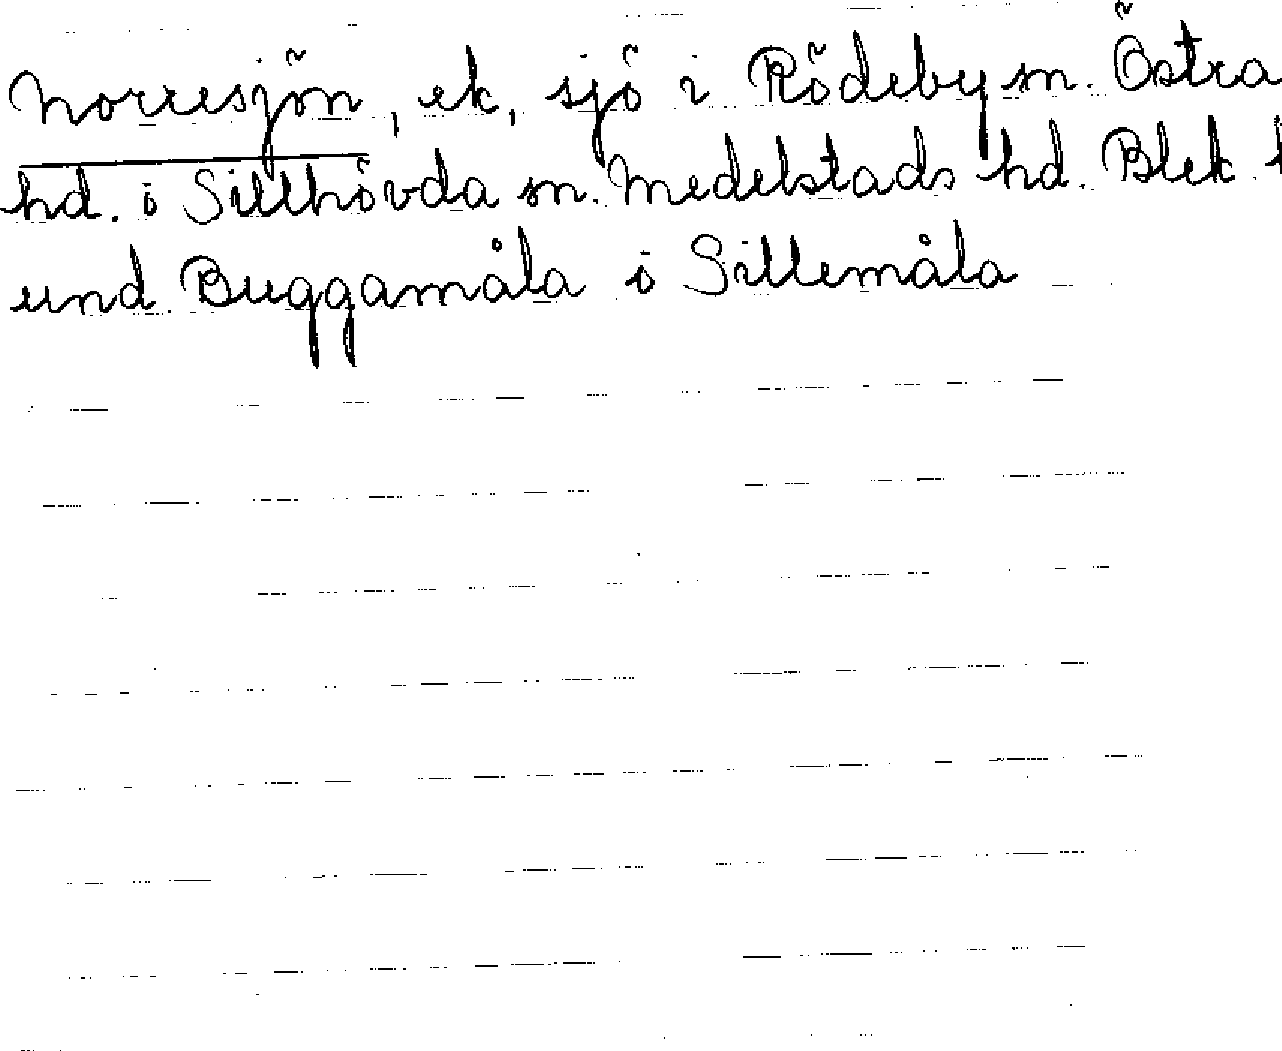 Norresjön, ek, sjö i Rödeby sn. Östra
hd. ö Sillhövda sn. Medelstads hd. Blek
und Buggamåla ö Sillemåla